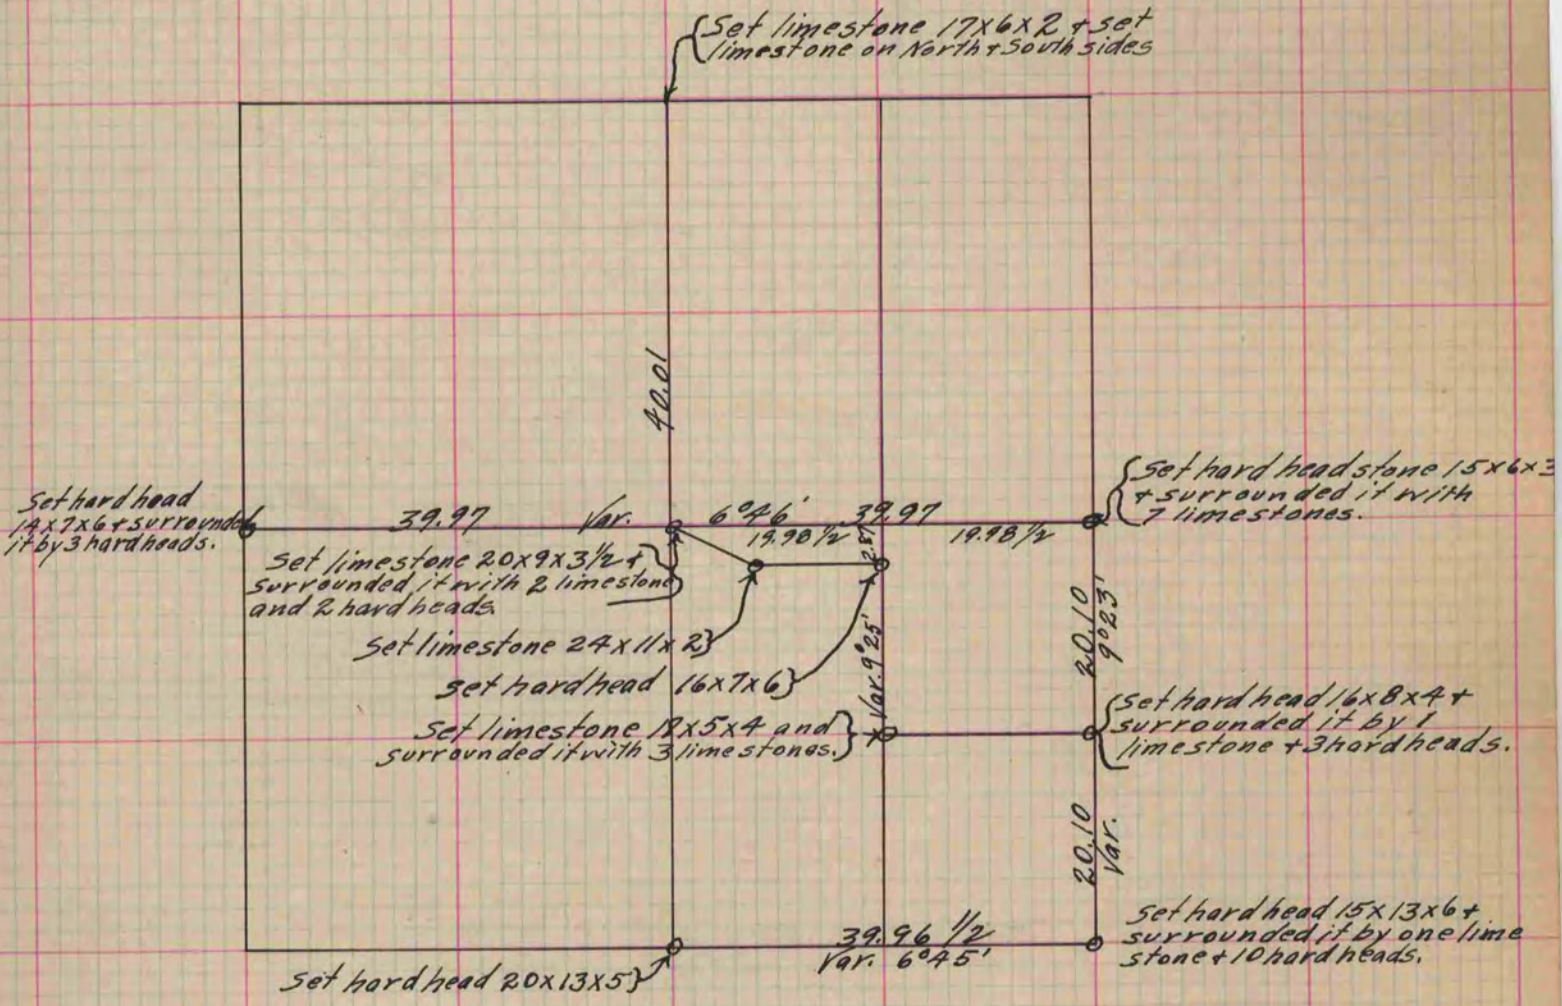 Set limestone 17x6x2 + set
limestone on North + South sides
40.01
Set hard head
14x7x6 + surrounded
it by 3 hard heads.
39.97 Var. 6°46' 39.97
19.98 1/2 19.98 1/2
Set hard head stone 15x6x3
+ surrounded it with
7 limestones.
Set limestone 20x9x3 1/2 +
surrounded it with 2 limestone
and 2 hard heads.
Set limestone 24x11x2
set hard head 16x7x6
Var. 9°25'
20.10
9°23'
Set limestone 12x5x4 and
surrounded it with 3 limestones.
Set hard head 16x8x4 +
surrounded it by 1
limestone + 3 hard heads.
20.10
Var.
Set hard head 15x13x6 +
surrounded it by one lime
stone + 10 hard heads.
39.96 1/2
Var. 6°45'
Set hard head 20x13x5